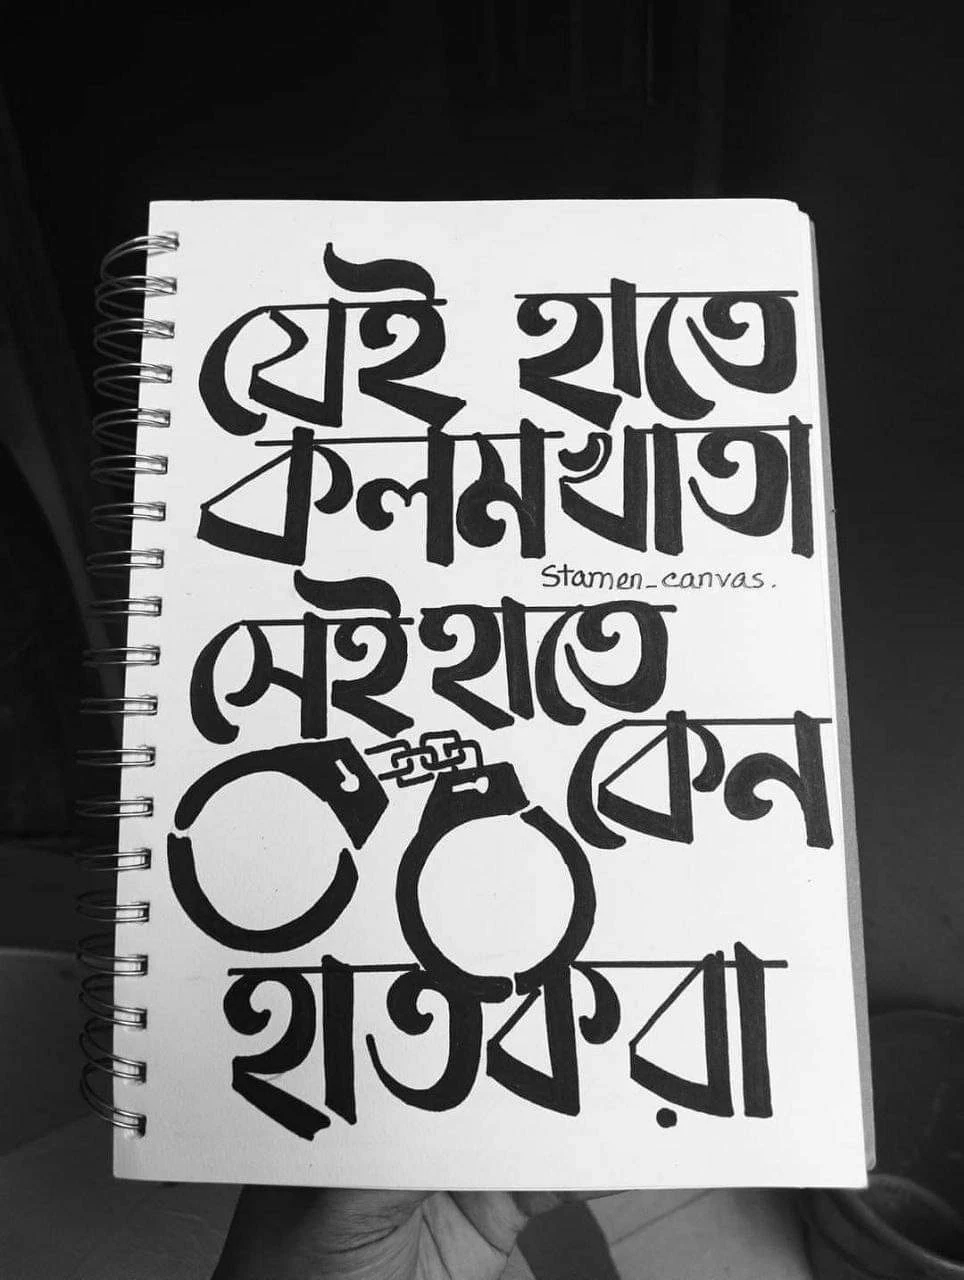 যেই হাতে
কলম খাতা
Stamen_canvas.
সেই হাতে
কেন
হাতকরা